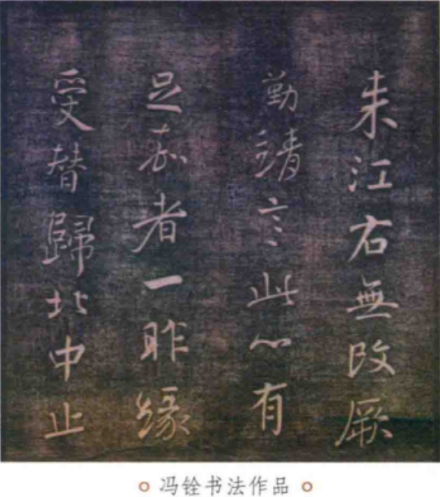 来江右無改厥
勤靖言此心有
足嘉者一昨緣
受替歸北中止
冯铨书法作品